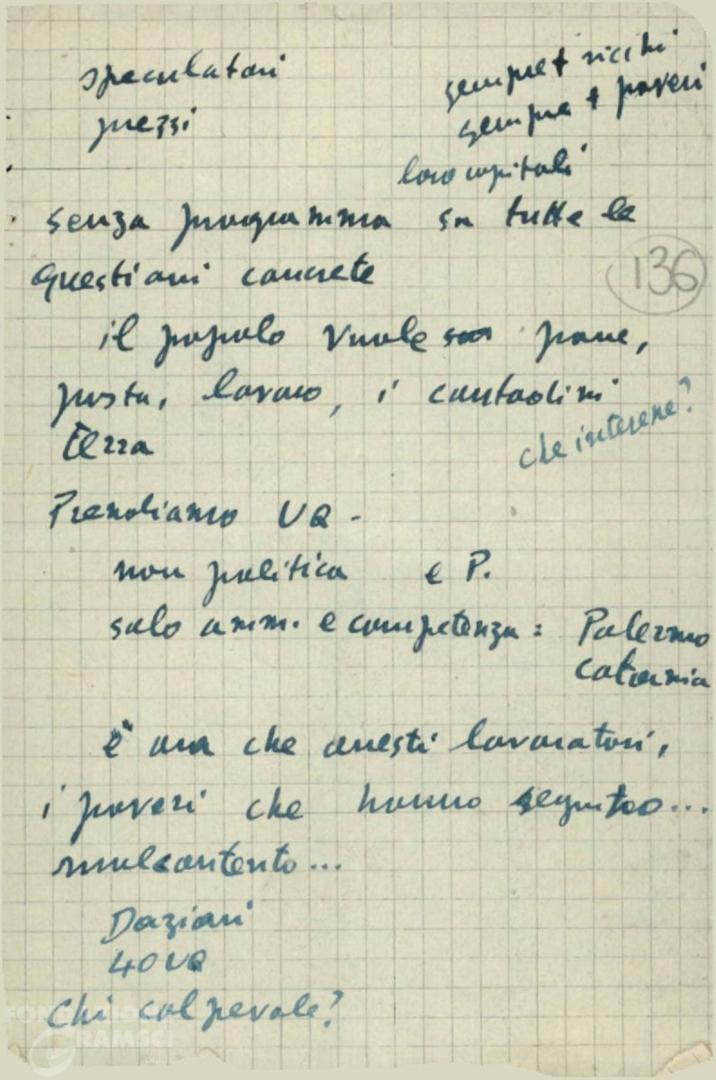 speculatori
prezzi
sempre + ricchi
sempre + poveri
loro capitali
senza programma su tutte le
questioni concrete
136
il popolo vuole pane,
pasta, lavoro, i contadini
terra
che interesse?
Prendiamo UQ -
non politica e P.
solo amm. e competenza: Palermo
Catania
è ora che onesti lavoratori,
i poveri che hanno seguito...
malcontento...
Daziari
40 UQ
Chi colpevole?